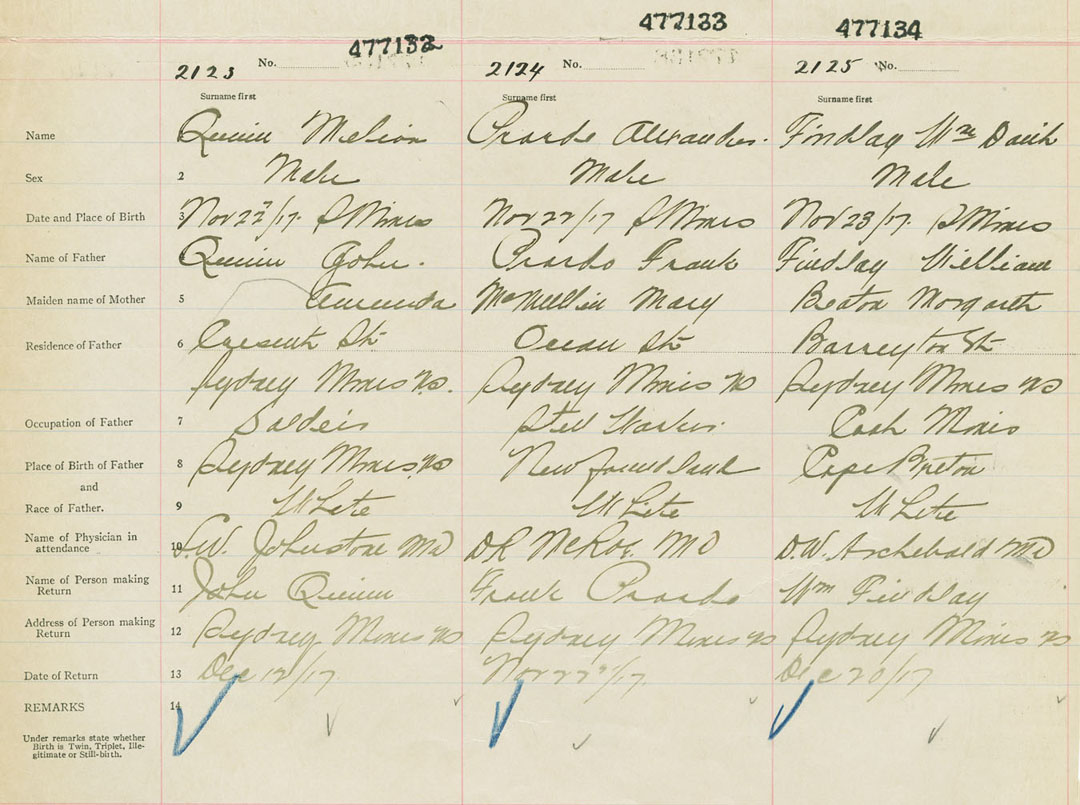 477132 477133 477134
2123 No. 2124 No. 2125 No.
Surname first Surname first Surname first
Name Quinn Alexander Findlay Wm
Sex 2 Male Male Male
Date and Place of Birth 3 Nov 22/17 S Mines Nov 22/17 S Mines Nov 23/17 S Mines
Name of Father Quinn John. Frank Findlay William
Maiden name of Mother 5 Mary Beaton
Residence of Father 6 St Ocean St St
Sydney Mines NS. Sydney Mines NS Sydney Mines NS
Occupation of Father 7
Place of Birth of Father 8 Sydney Mines NS Newfoundland Cape Breton
and
Race of Father. 9 White White White
Name of Physician in
attendance 10 Johnstone MD MD D.W. Archebald MD
Name of Person making
Return 11 John Quinn Frank Wm Findlay
Address of Person making
Return 12 Sydney Mines NS Sydney Mines NS Sydney Mines NS
Date of Return 13 Dec 12/17 Nov 22/17. Dec 20/17
REMARKS 14
Under remarks state whether
Birth is Twin, Triplet, Ille-
gitimate or Still-birth.